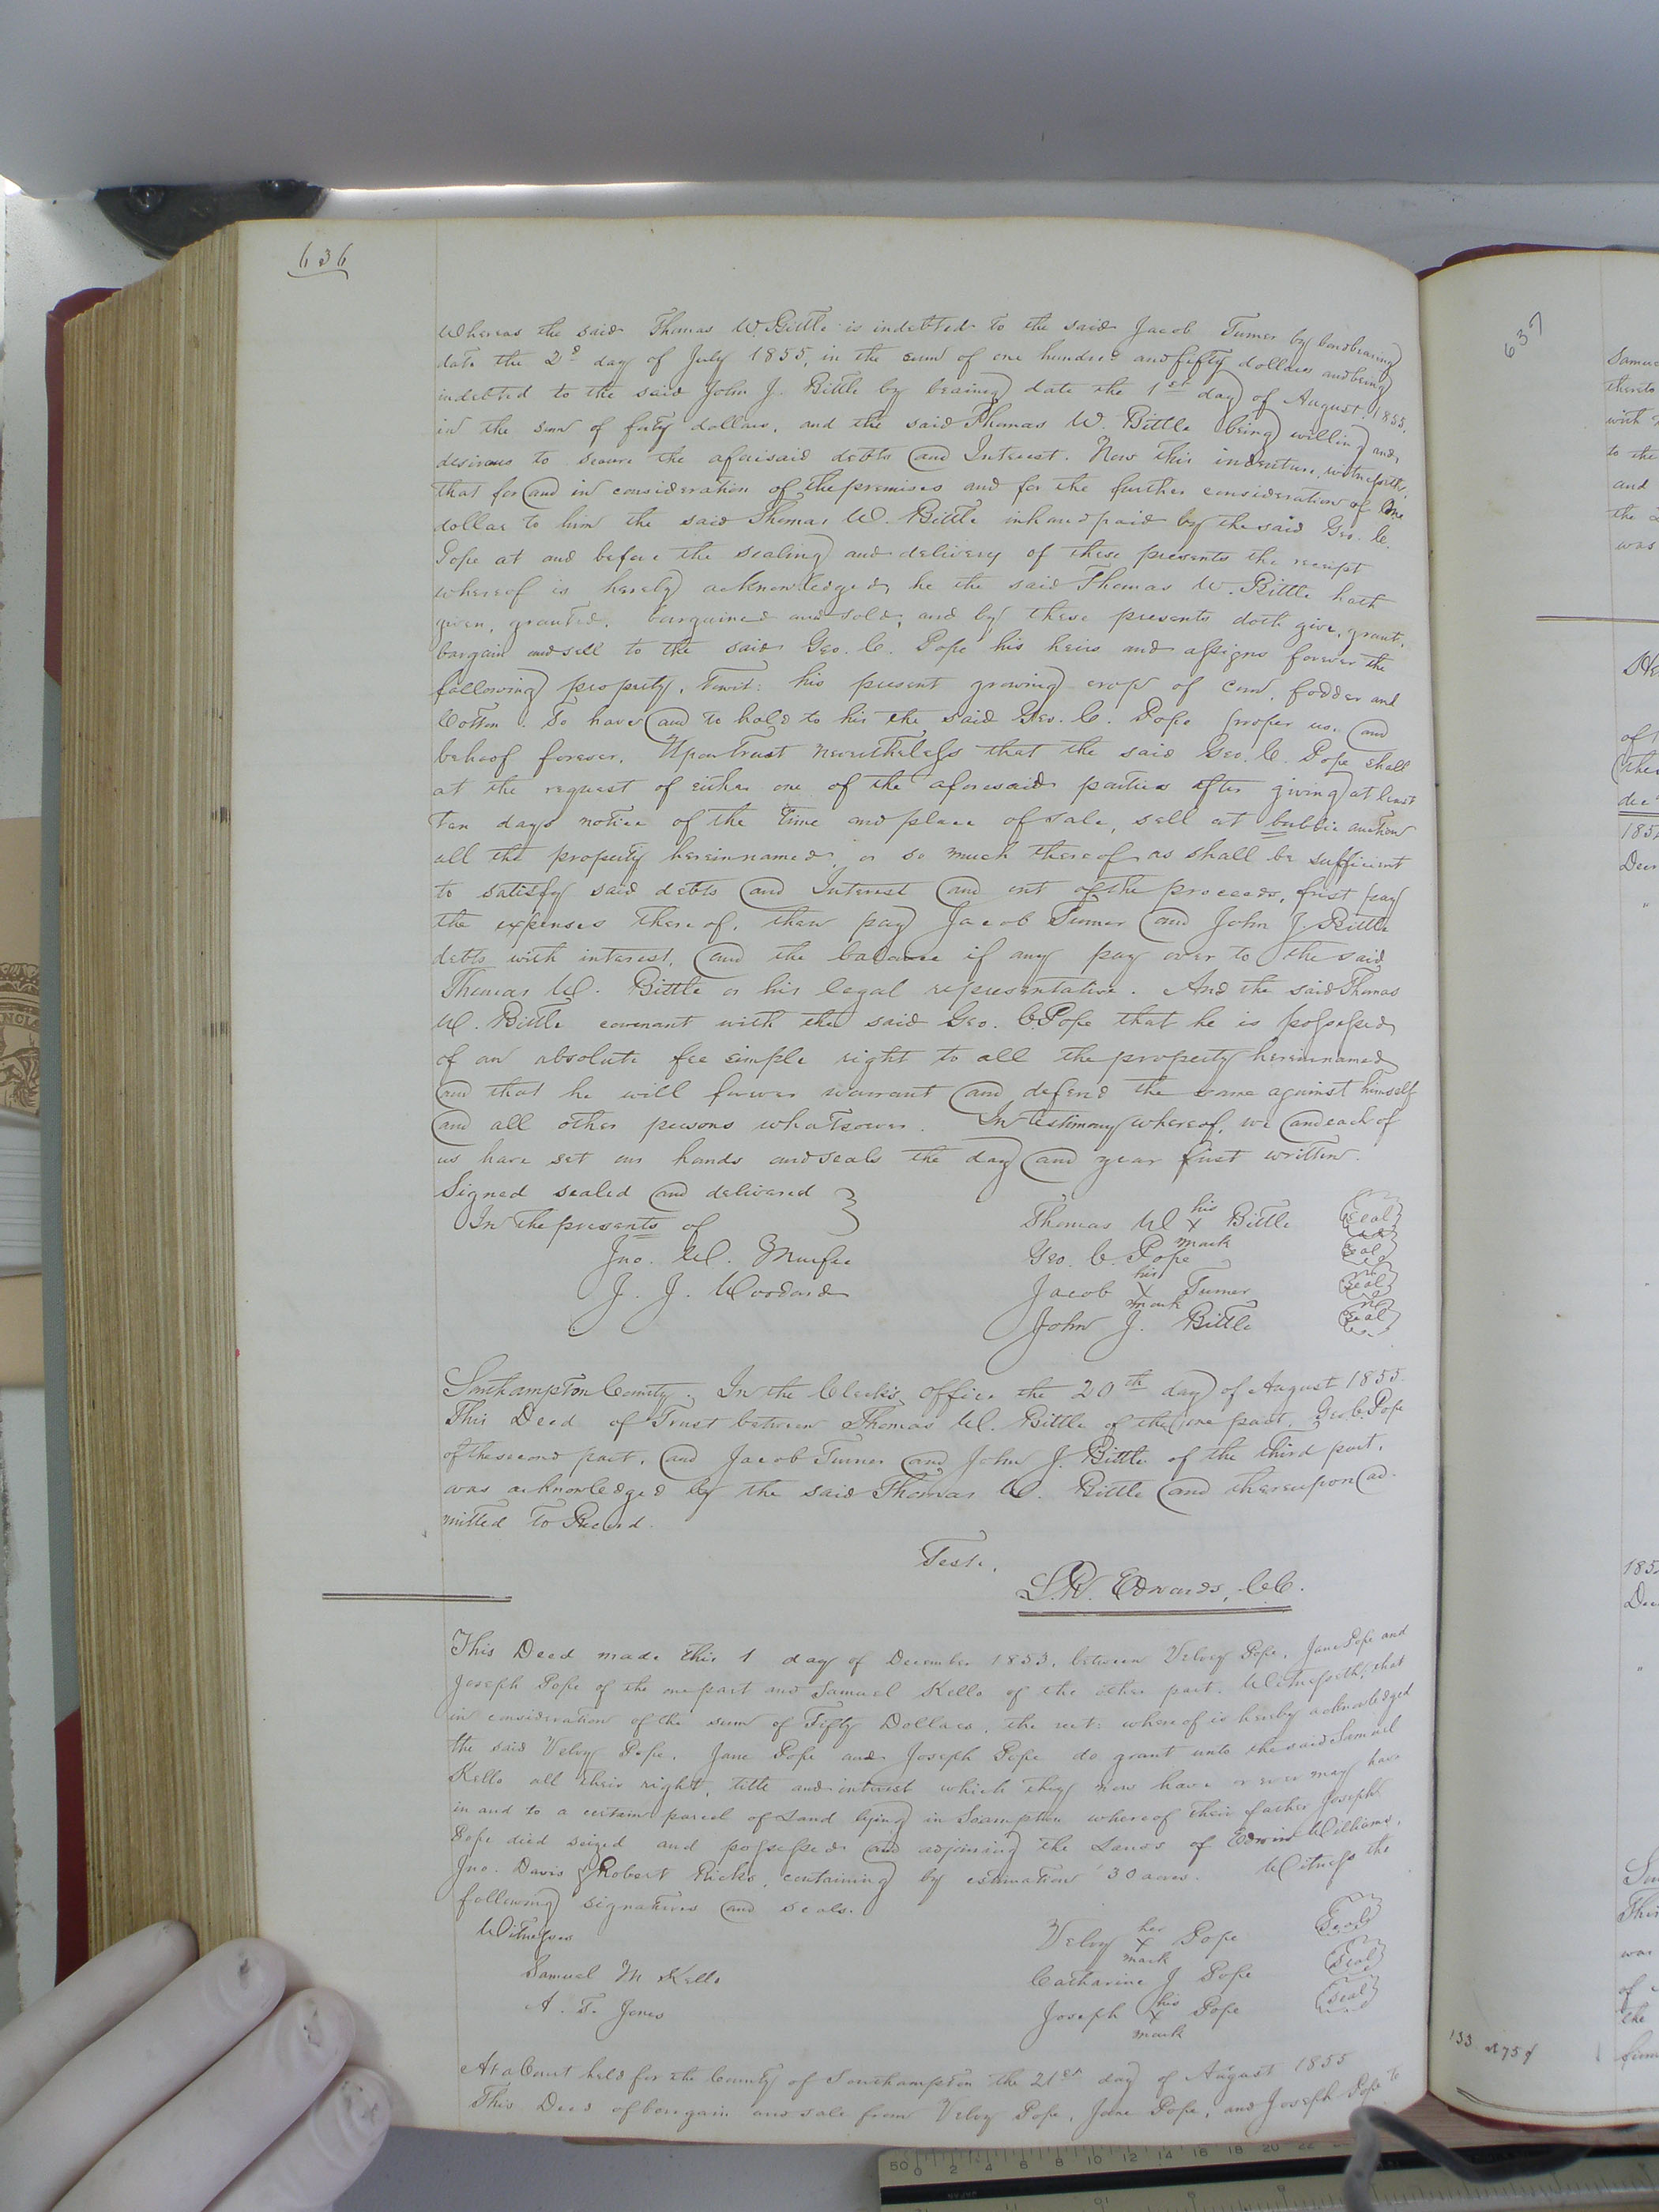 636
Whereas the said Thomas W. Bittle is indebted to the said Jacob Turner by bond bearing
date the 2d day of July 1855, in the sum of one hundred and fifty dollars and being
indebted to the said John J. Bittle by bearing date the 1st day of August 1855.
in the sum of forty dollars, and the said Thomas W. Bittle being willing and
desirous to secure the aforisaid debts and Interest. Now this indenture witnesseth,
that for and in consideration of the premises and for the further consideration of One
dollar to him the said Thomas W. Bittle in hand paid by the said Geo. C.
Pope at and before the sealing and delivery of these presents the receipt
whereof is hereby acknowledged, he the said Thomas W. Bittle hath
given, granted, bargained and sold, and by these presents doth give, grant,
bargain and sell to the said Geo. C. Pope his heirs and assigns forever the
following property, Towit: his present growing crop of Corn, fodder and
Cotton. To have and to hold to his the said Geo. C. Pope proper use and
behoof forever. Upon trust nevertheless that the said Geo. C. Pope shall
at the request of either one of the aforesaid parties after giving at least
ten days notice of the time and place of sale, sell at bublic auction
all the property herein named, or so much thereof as shall be sufficient
to satisfy said debts and Interest and out of the proceeds, first pay
the expenses thereof, then pay Jacob Turner and John J. Bittle
debts with interest, and the balance if any pay over to the said
Thomas W. Bittle or his legal representative. And the said Thomas
W. Bittle covenant with the said Geo. C. Pope that he is possessed
of an absolute fee simple right to all the property herein named
and that he will forever warrant and defend the same against himself
and all other persons whatsoever. In testimony whereof, we and each of
us have set our hands and seals the day and year first written.
Signed sealed and delivered
In the presents of
Thomas W his X mark Bittle Seal
Jno. W. Murfee
Geo. C. Pope Seal
J. J. Woodard
Jacob his X mark Turner Seal
John J. Bittle Seal
Southampton County. In the Clerk's office the 20th day of August 1855.
This Deed of Trust between Thomas W. Bittle of the one part, Geo. C. Pope
of the second part, and Jacob Turner and John J. Bittle of the third part,
was acknowledged by the said Thomas W. Bittle and thereupon ad-
mitted to Record.
Teste,
L. R. Edwards, C.C.
This Deed made this 1 day of December 1853, between Velvy Pope, Jane Pope and
Joseph Pope of the one part and Samuel Kello of the other part. Witnesseth, that
in consideration of the sum of Fifty Dollars, the rect: whereof is hereby acknowledged
the said Velvy Pope, Jane Pope and Joseph Pope do grant unto the said Samuel
Kello all their right, title and interest which they now have or ever may have
in and to a certain parcel of Land lying in Soampton whereof their father Joseph
Pope died seized and possessed and adjoining the Lands of Edwin Williams,
Jno. Davis & Robert Ricks, containing by estimation 30 acres. Witness the
following signatures and seals.
Witnesses
Velvy her X mark Pope Seal
Samuel M Kello
Catharine J Pope Seal
A. T. Jones
Joseph his X mark Pope Seal
At a Court held for the County of Southampton the 21st day of August 1855
This Deed of bargain and sale from Velvy Pope, Jane Pope, and Joseph Pope to
637
thereto
with
to the
and
the
was